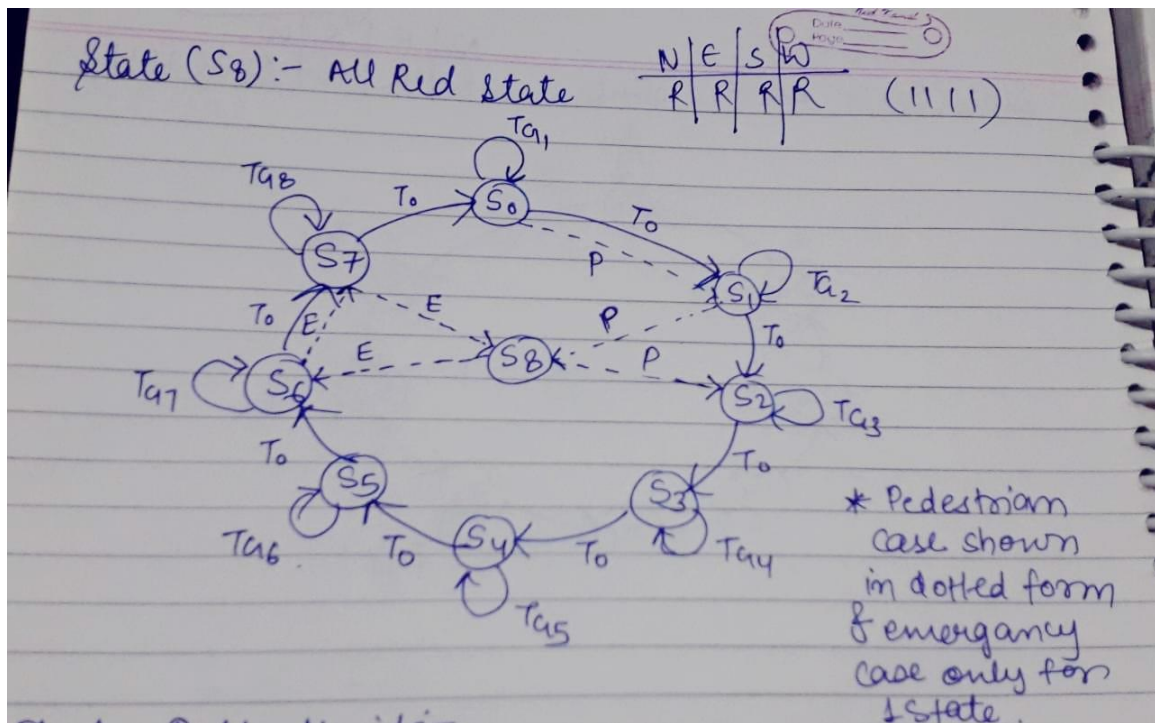 Date
Page
State (S8):- All Red State
N | E | S | W
R | R | R | R (1111)
TG1
TG8
T0 S0 T0
P
S7
S1 TG2
T0 E E P T0
E S8 P
TG7 S6 S2 TG3
T0 T0
S5 S3
TG6 T0 S4 T0 TG4
TG5
* Pedestrian
case shown
in dotted form
& emergancy
case only for
1 state